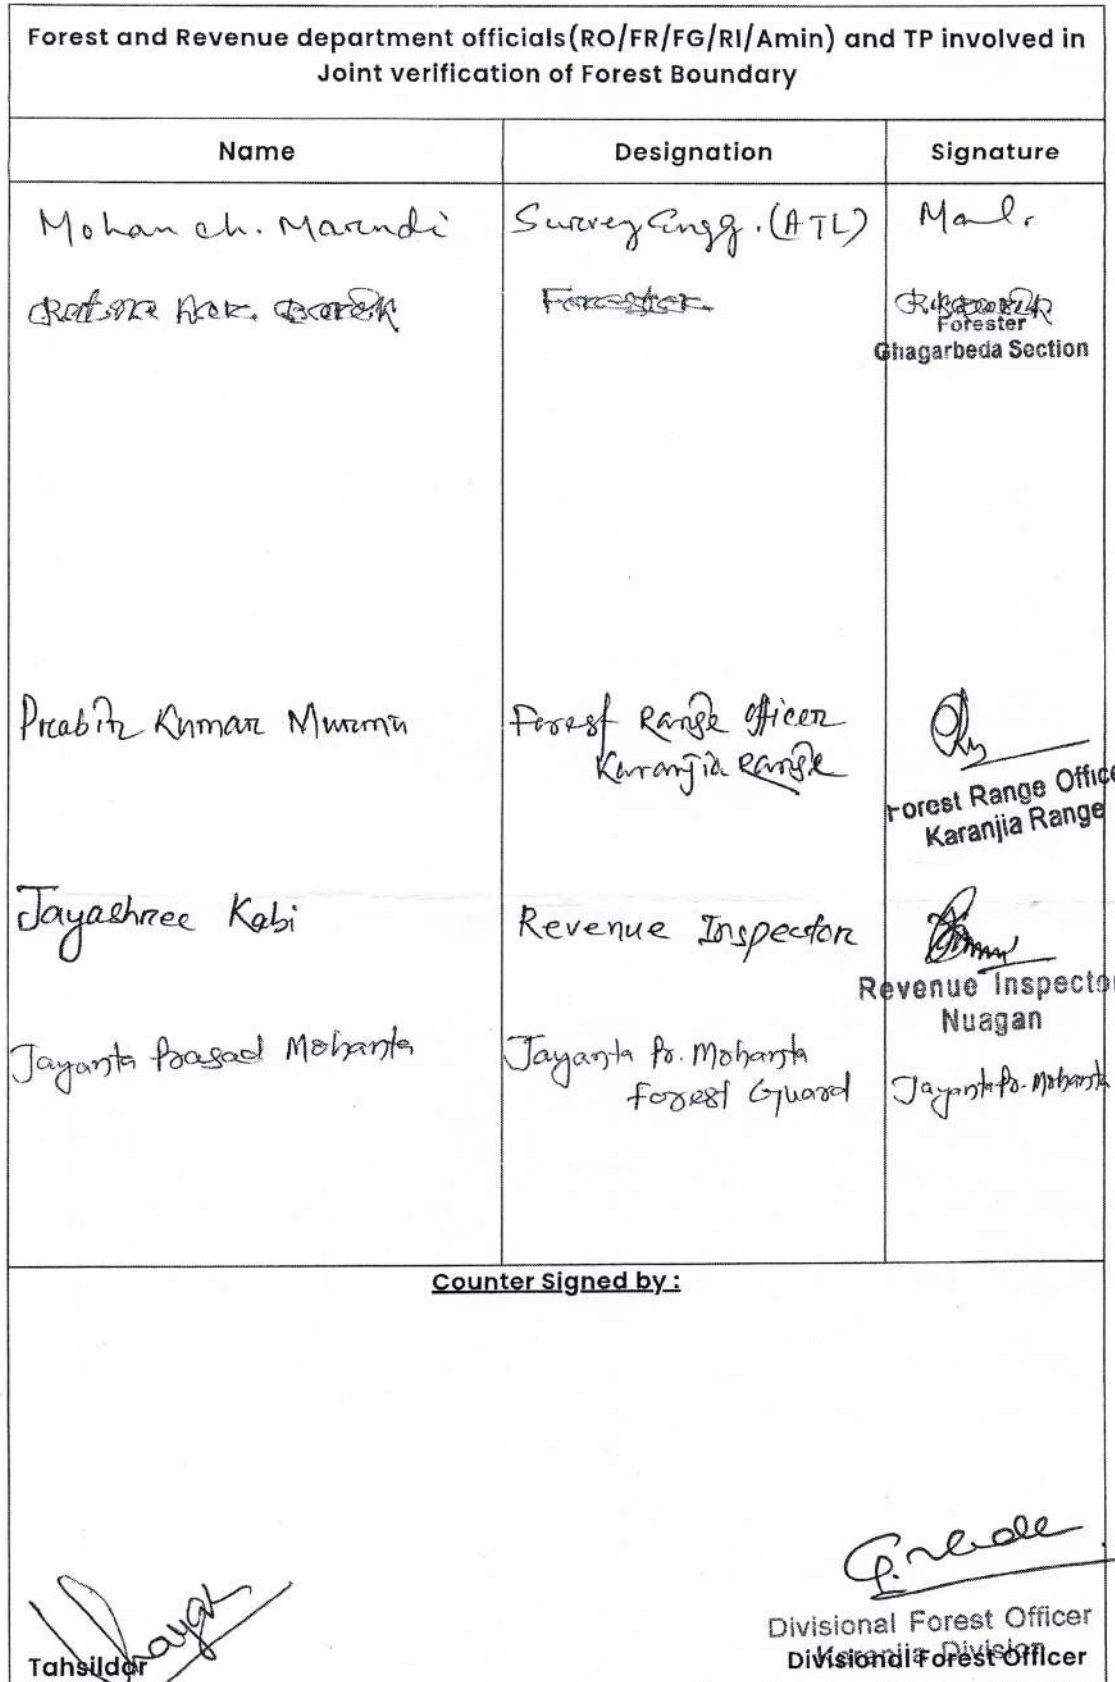 Forest and Revenue department officials(RO/FR/FG/RI/Amin) and TP involved in
Joint verification of Forest Boundary
Name Designation Signature
Mohan ch. Marndi Survey Engg. (ATL)
Forester
Forester
Ghagarbeda Section
Prabir Kumar Murmu Forest Range Officer
Karanjia Range
Forest Range Office
Karanjia Range
Jayashree Kabi Revenue Inspector
Revenue Inspector
Nuagan
Jayanta Prasad Mohanta Jayanta Pr. Mohanta
Forest Guard Jayanta Pr. Mohanta
Counter Signed by :
Divisional Forest Officer
Karanjia Division
Tahsildar Divisional Forest Officer